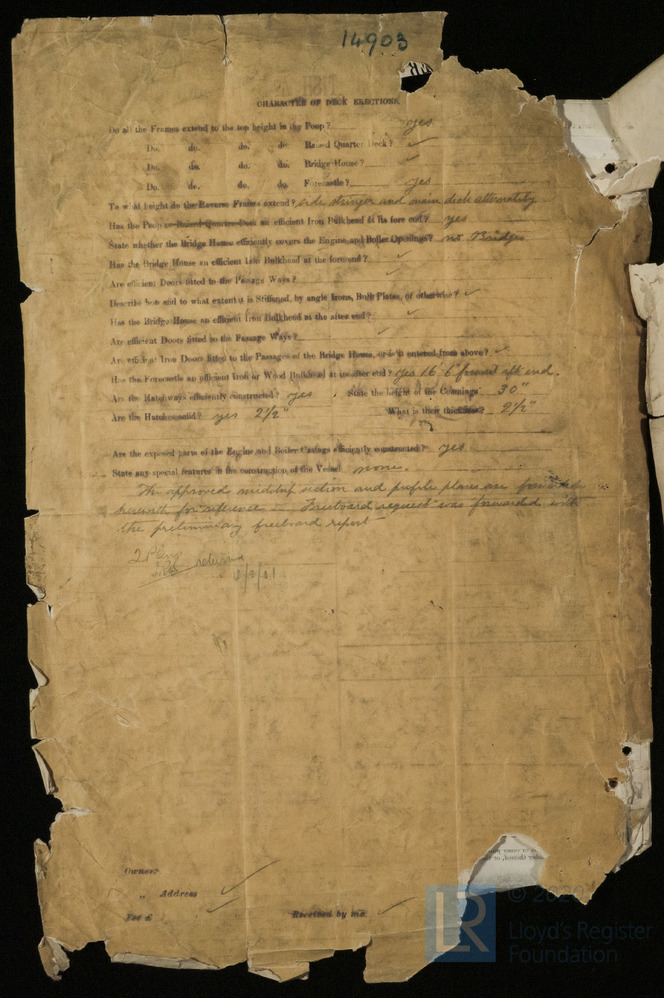 14903
CHARACTER OF DECK ERECTIONS.
Do all the Frames extend to the top height in the Poop? yes
Do. do. do. do. Raised Quarter Deck? ✓
Do. do. do. do. Bridge House? ✓
Do. do. do. do. Forecastle? yes
To what height do the Reverse Frames extend? side stringer and main deck alternately
Has the Poop or Raised Quarter Deck an efficient Iron Bulkhead at its fore end? yes
State whether the Bridge House efficiently covers the Engine and Boiler Openings? no Bridge
Has the Bridge House an efficient Iron Bulkhead at the fore end? ✓
Are efficient Doors fitted to the Passage Ways? ✓
Describe how and to what extent it is Stiffened, by angle Irons, Bulb Plates, or otherwise? ✓
Has the Bridge House an efficient Iron Bulkhead at the after end? ✓
Are efficient Doors fitted to the Passage Ways? ✓
Are efficient Iron Doors fitted to the Passages of the Bridge House, or is it entered from above? ✓
Has the Forecastle an efficient Iron or Wood Bulkhead at its after end? yes 16'6" forward aft end.
Are the Hatchways efficiently constructed? yes. State the height of the Coamings 30"
Are the Hatches solid? yes 2½" What is their thickness? 2½"
Are the exposed parts of the Engine and Boiler Casings efficiently constructed? yes
State any special features in the construction of the Vessel none.
The approved midship section and profile plans are forwarded
herewith for reference — Freeboard request was forwarded with
the preliminary freeboard report
2 Plans
returned
Owners
„ Address ✓
Fee £ ✓ Received by me. ✓
© 2020
LR Lloyd's Register
Foundation